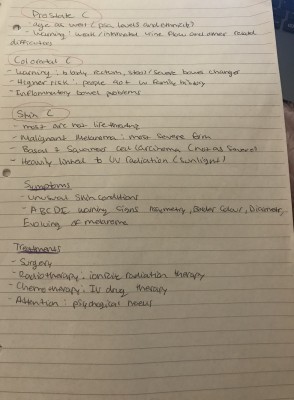 Prostate C
- age as well (psa levels and ethnicity)
- Warning: weak / interrupted urine flow and other related
difficulties
Colorectal C
- Warning: bloody rectum, stool / bowel changes
- Higher risk: people 40+ w family history
- Inflammatory bowel problems
Skin C
- most are not life threating
- Malignant Melanoma: most severe form
- Basal & Squamous Cell Carcinoma (not as severe)
- Heavily linked to UV radiation (sunlight)
Symptoms
- unusual skin conditions
- ABCDE warning signs Asymmetry, Border, Colour, Diameter,
Evolving of melanoma
Treatments
- Surgery
- Radiotherapy, ionize radiation therapy
- Chemotherapy, IV drug therapy
- Attention: psychological needs